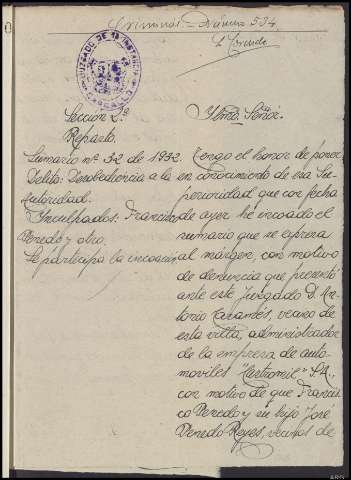 Criminal = Número 534
La Coruña
JUZGADO DE 1ª INSTANCIA
CARBALLO
Sección 2ª
Reparto.
Sumario nº 32 de 1932.
Delito: Desobediencia a la
Autoridad.
Inculpados: Francisco
Penedo y otro.
Se participa la incoación
Iltmo. Señor.
Tengo el honor de poner
en conocimiento de esa Su-
perioridad que con fecha
de ayer he incoado el
sumario que se expresa
al márgen, con motivo
de denuncia que presentó
ante este Juzgado D. An-
tonio vecino de
esta villa, administrador
de la empresa de auto-
moviles S.A.,
con motivo de que Francis-
co Penedo y su hijo José
Penedo Reyes, vecinos de